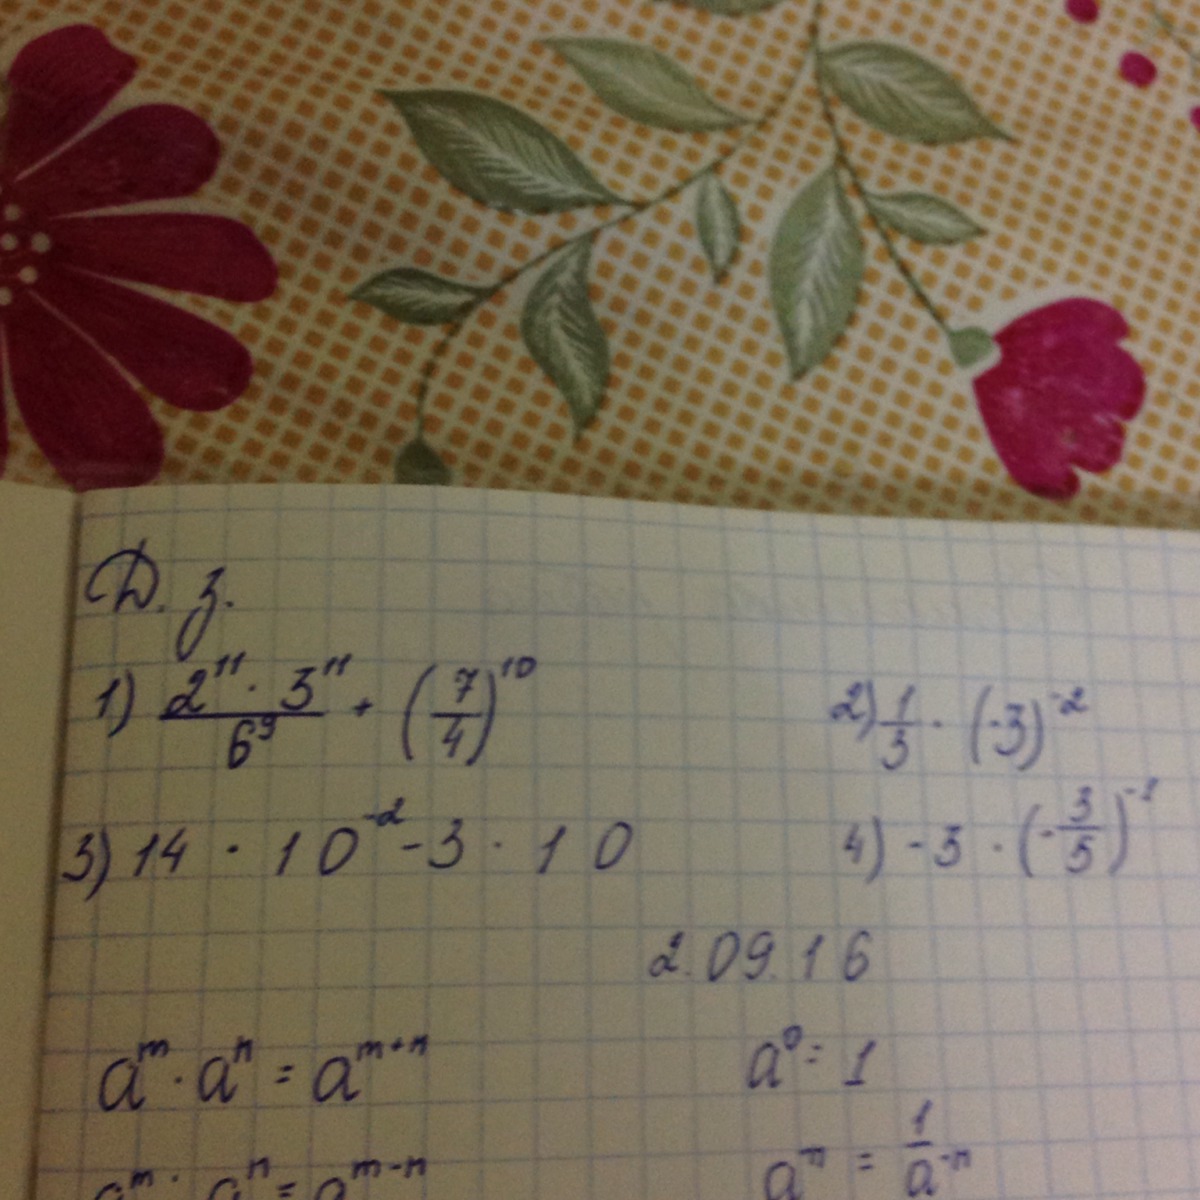 Д. з.
1) (2^11 · 3^11)/6^9 + (7/4)^10
2) 1/3 · (-3)^-2
3) 14 · 10^-2 - 3 · 10
4) -3 · (-3/5)^-1
2.09.16
a^m · a^n = a^(m+n)
a^0 = 1
a^m : a^n = a^(m-n)
a^n = 1/a^-n